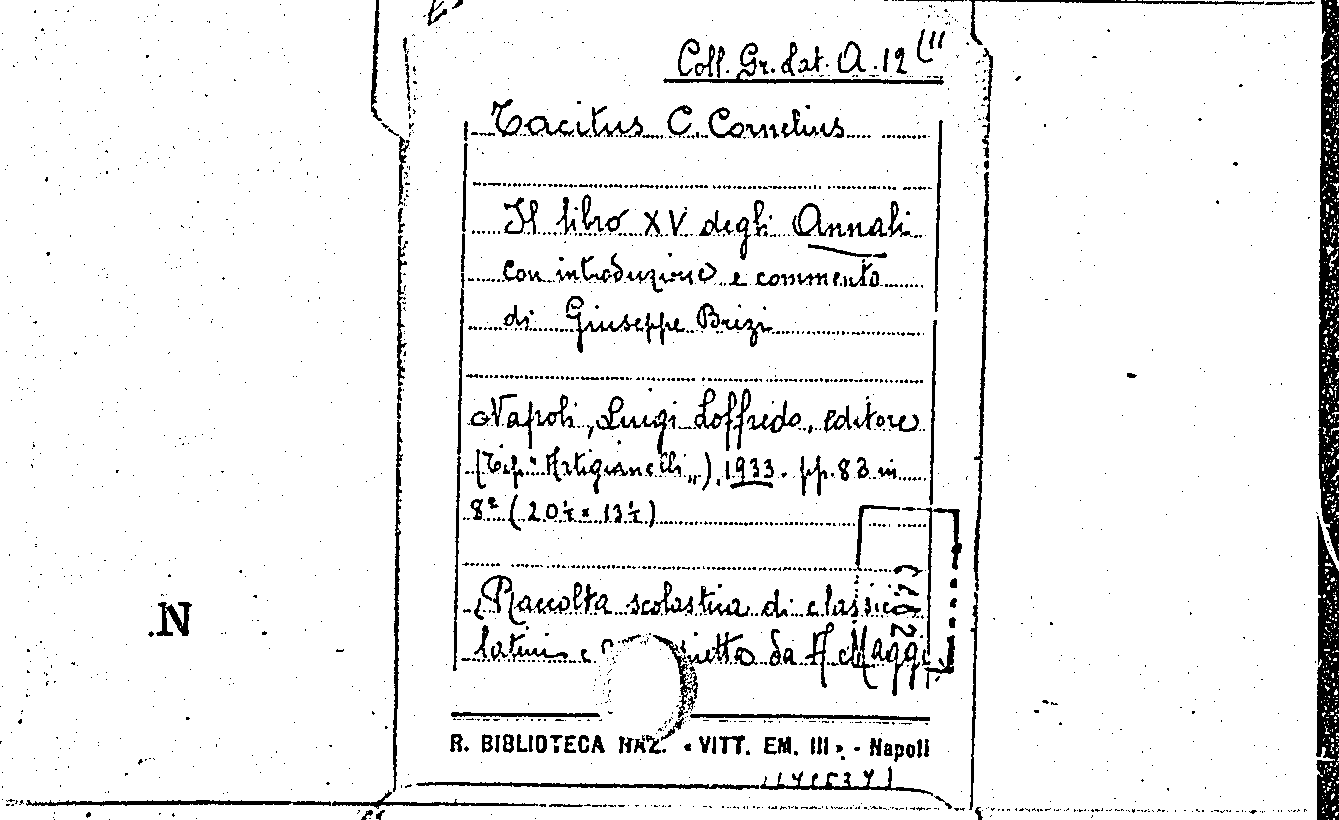 Coll. Gr. Lat. A. 12 (11
Tacitus C. Cornelius
Il libro XV degli Annali
con introduzione e commento
di Giuseppe Brizi
Napoli, Luigi Loffredo, editore
(Tip. "Artigianelli"), 1933. pp. 83 in
8º (20½ × 13½)
(Raccolta scolastica di classici
latini e da A. Maggi
R. BIBLIOTECA NAZ. «VITT. EM. III» - Napoli
N